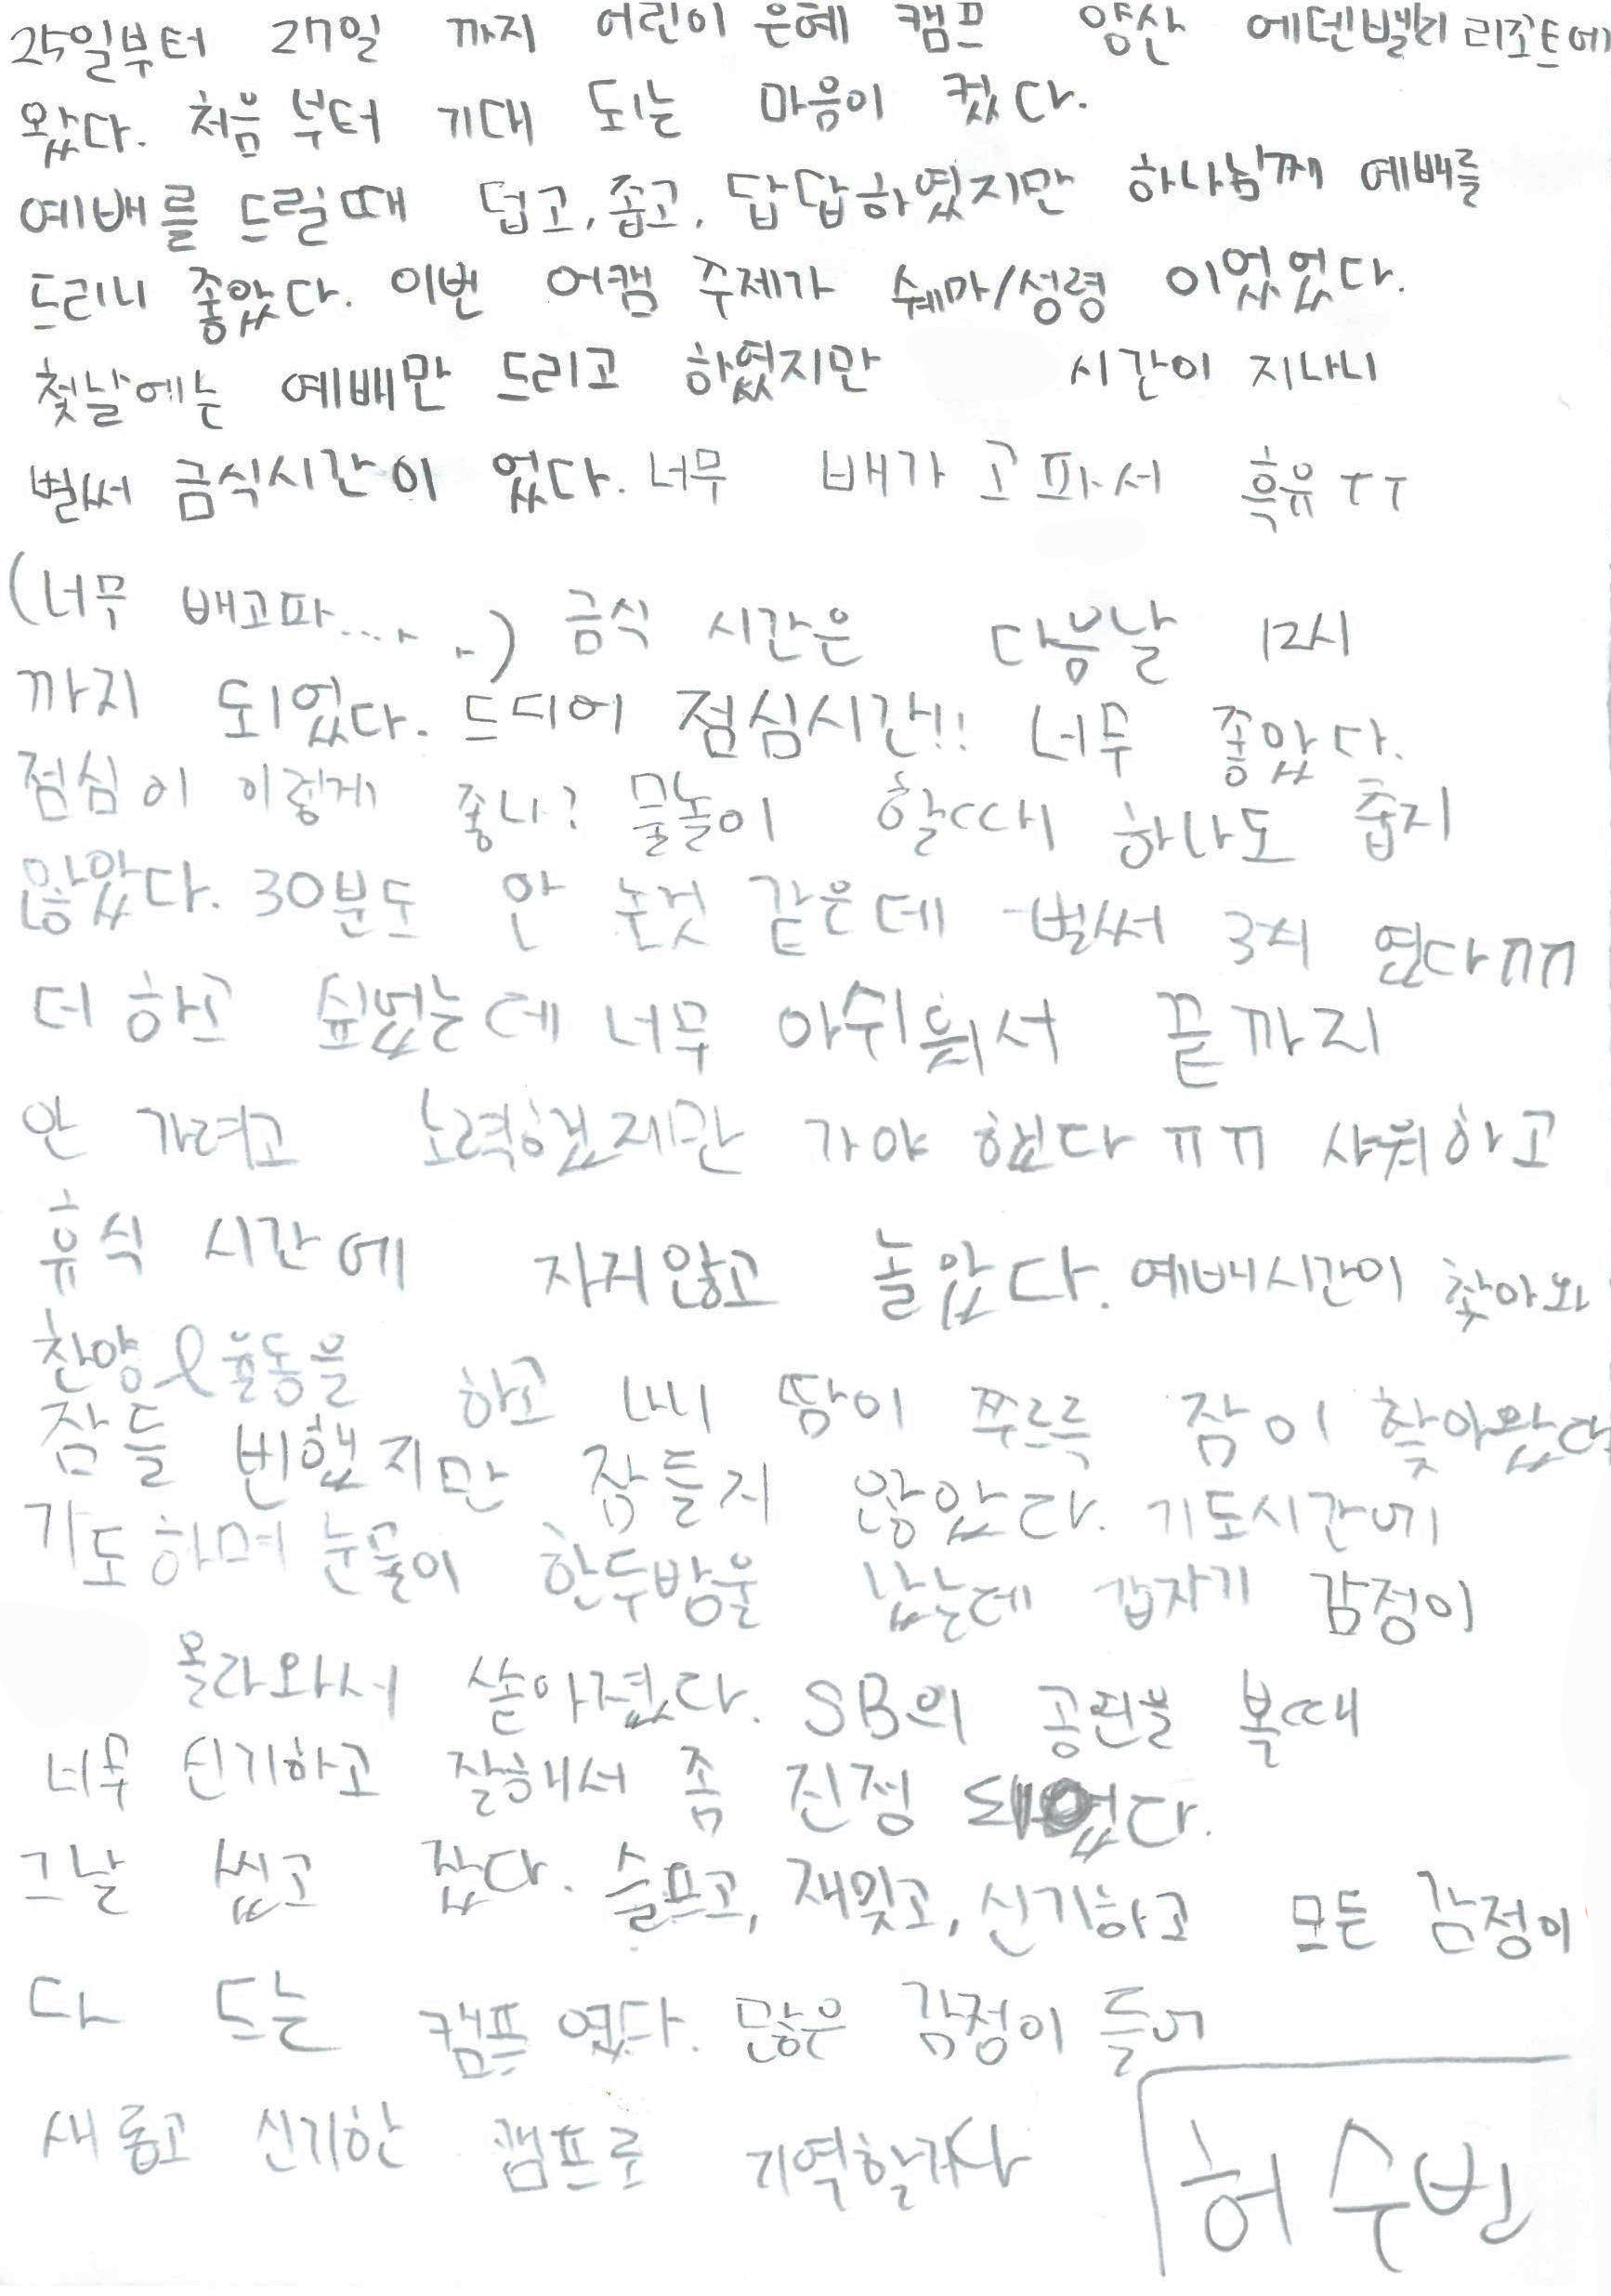 25일부터 27일 까지 어린이 은혜 캠프 양산 에덴벨리 리조트에
왔다. 처음부터 기대 되는 마음이 컸다.
예배를 드릴때 덥고, 좁고, 답답하였지만 하나님께 예배를
드리니 좋았다. 이번 어캠 주제가 쉐마/성령 이었었다.
첫날에는 예배만 드리고 하였지만 시간이 지나니
벌써 금식시간이 었다. 너무 배가 고파서 흑유ㅜㅜ
(너무 배고파......) 금식 시간은 다음날 12시
까지 되었다. 드디어 점심시간!! 너무 좋았다.
점심이 이렇게 좋나? 물놀이 할때 하나도 춥지
않았다. 30분도 안 논것 같은데 벌써 3시 였다ㅠㅠ
더 하고 싶었는데 너무 아쉬워서 끝까지
안 가려고 노력했지만 가야 했다ㅠㅠ 샤워하고
휴식 시간에 자지않고 놀았다. 예배시간이 찾아와
찬양&율동을 하고 나니 땀이 쭈르륵 잠이 찾아왔다
잠들 번했지만 잠들지 않았다. 기도시간에
기도하며 눈물이 한두방울 났는데 갑자기 감정이
올라와서 쏟아졌다. SB의 공연을 볼때
너무 신기하고 잘해서 좀 진정 되었다.
그날 씻고 잤다. 슬프고, 재밌고, 신기하고 모든 감정이
다 드는 캠프 였다. 많은 감정이 들어
새롭고 신기한 캠프로 기억할거다
허수빈